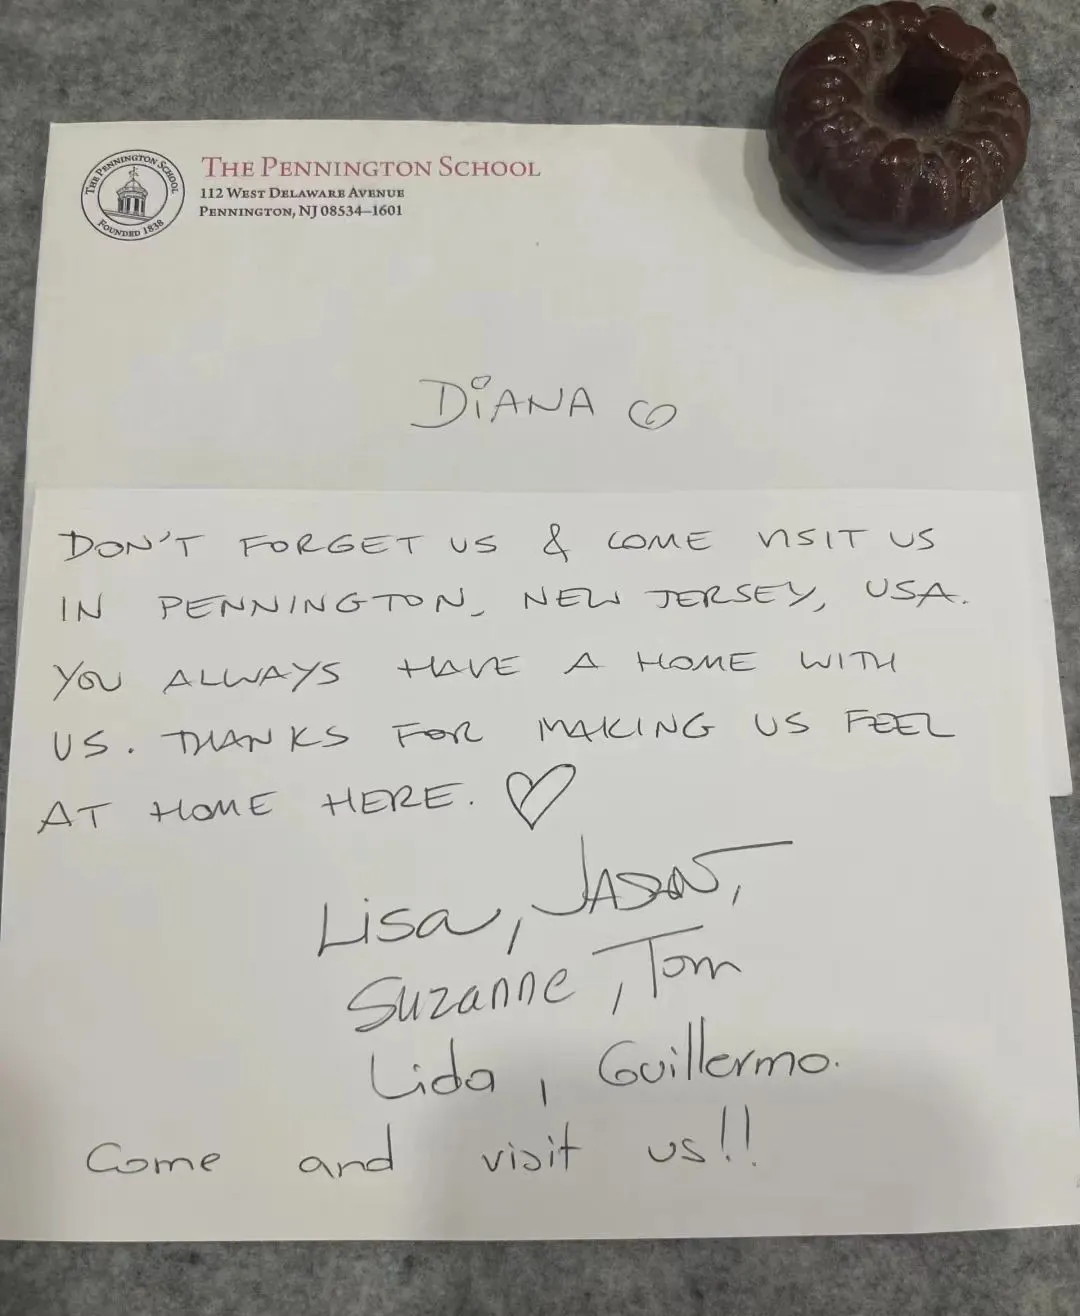 THE PENNINGTON SCHOOL
FOUNDED 1838
THE PENNINGTON SCHOOL
112 WEST DELAWARE AVENUE
PENNINGTON, NJ 08534–1601
DiANA
DON'T FORGET US & COME VISIT US
IN PENNINGTON, NEW JERSEY, USA.
YOU ALWAYS HAVE A HOME WITH
US. THANKS FOR MAKING US FEEL
AT HOME HERE. ♡
Lisa, JASON,
Suzanne, Tom
Lida, Guillermo.
Come and visit us!!